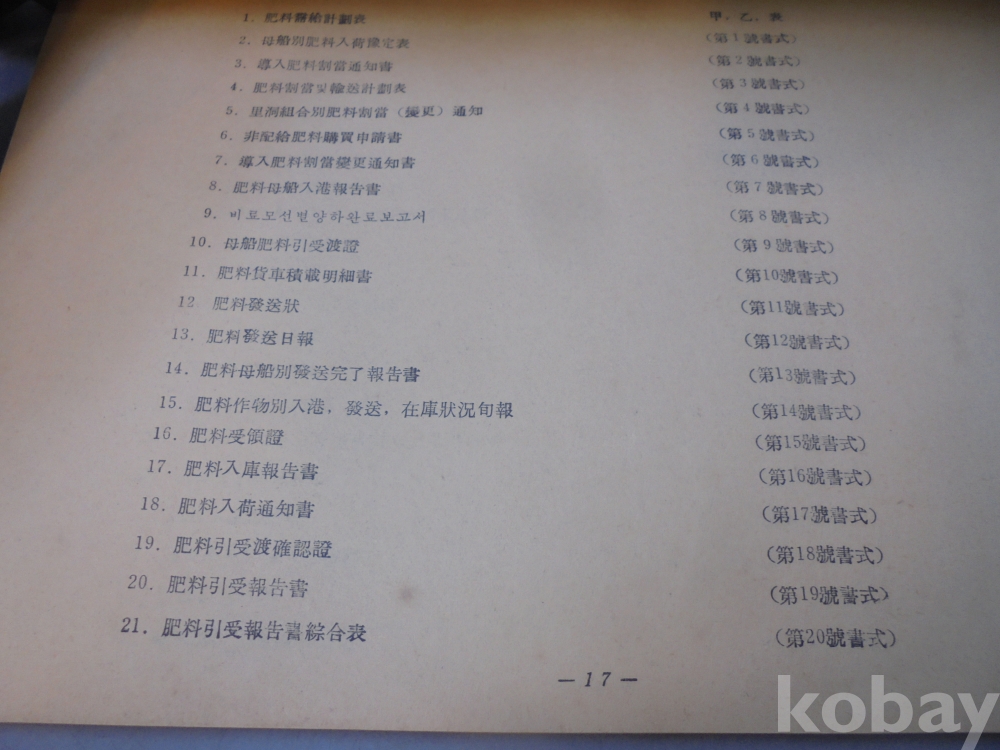 1. 肥料需給計劃表 甲、乙、表
2. 母船別肥料入荷豫定表 (第1號書式)
3. 導入肥料割當通知書 (第2號書式)
4. 肥料割當및輸送計劃表 (第3號書式)
5. 里洞組合別肥料割當（變更）通知 (第4號書式)
6. 非配給肥料購買申請書 (第5號書式)
7. 導入肥料割當變更通知書 (第6號書式)
8. 肥料母船入港報告書 (第7號書式)
9. 비료모선별양하완료보고서 (第8號書式)
10. 母船肥料引受渡證 (第9號書式)
11. 肥料貨車積載明細書 (第10號書式)
12 肥料發送狀 (第11號書式)
13. 肥料發送日報 (第12號書式)
14. 肥料母船別發送完了報告書 (第13號書式)
15. 肥料作物別入港, 發送, 在庫狀況旬報 (第14號書式)
16. 肥料受領證 (第15號書式)
17. 肥料入庫報告書 (第16號書式)
18. 肥料入荷通知書 (第17號書式)
19. 肥料引受渡確認證 (第18號書式)
20. 肥料引受報告書 (第19號書式)
21. 肥料引受報告書綜合表 (第20號書式)
— 17 —
kobay